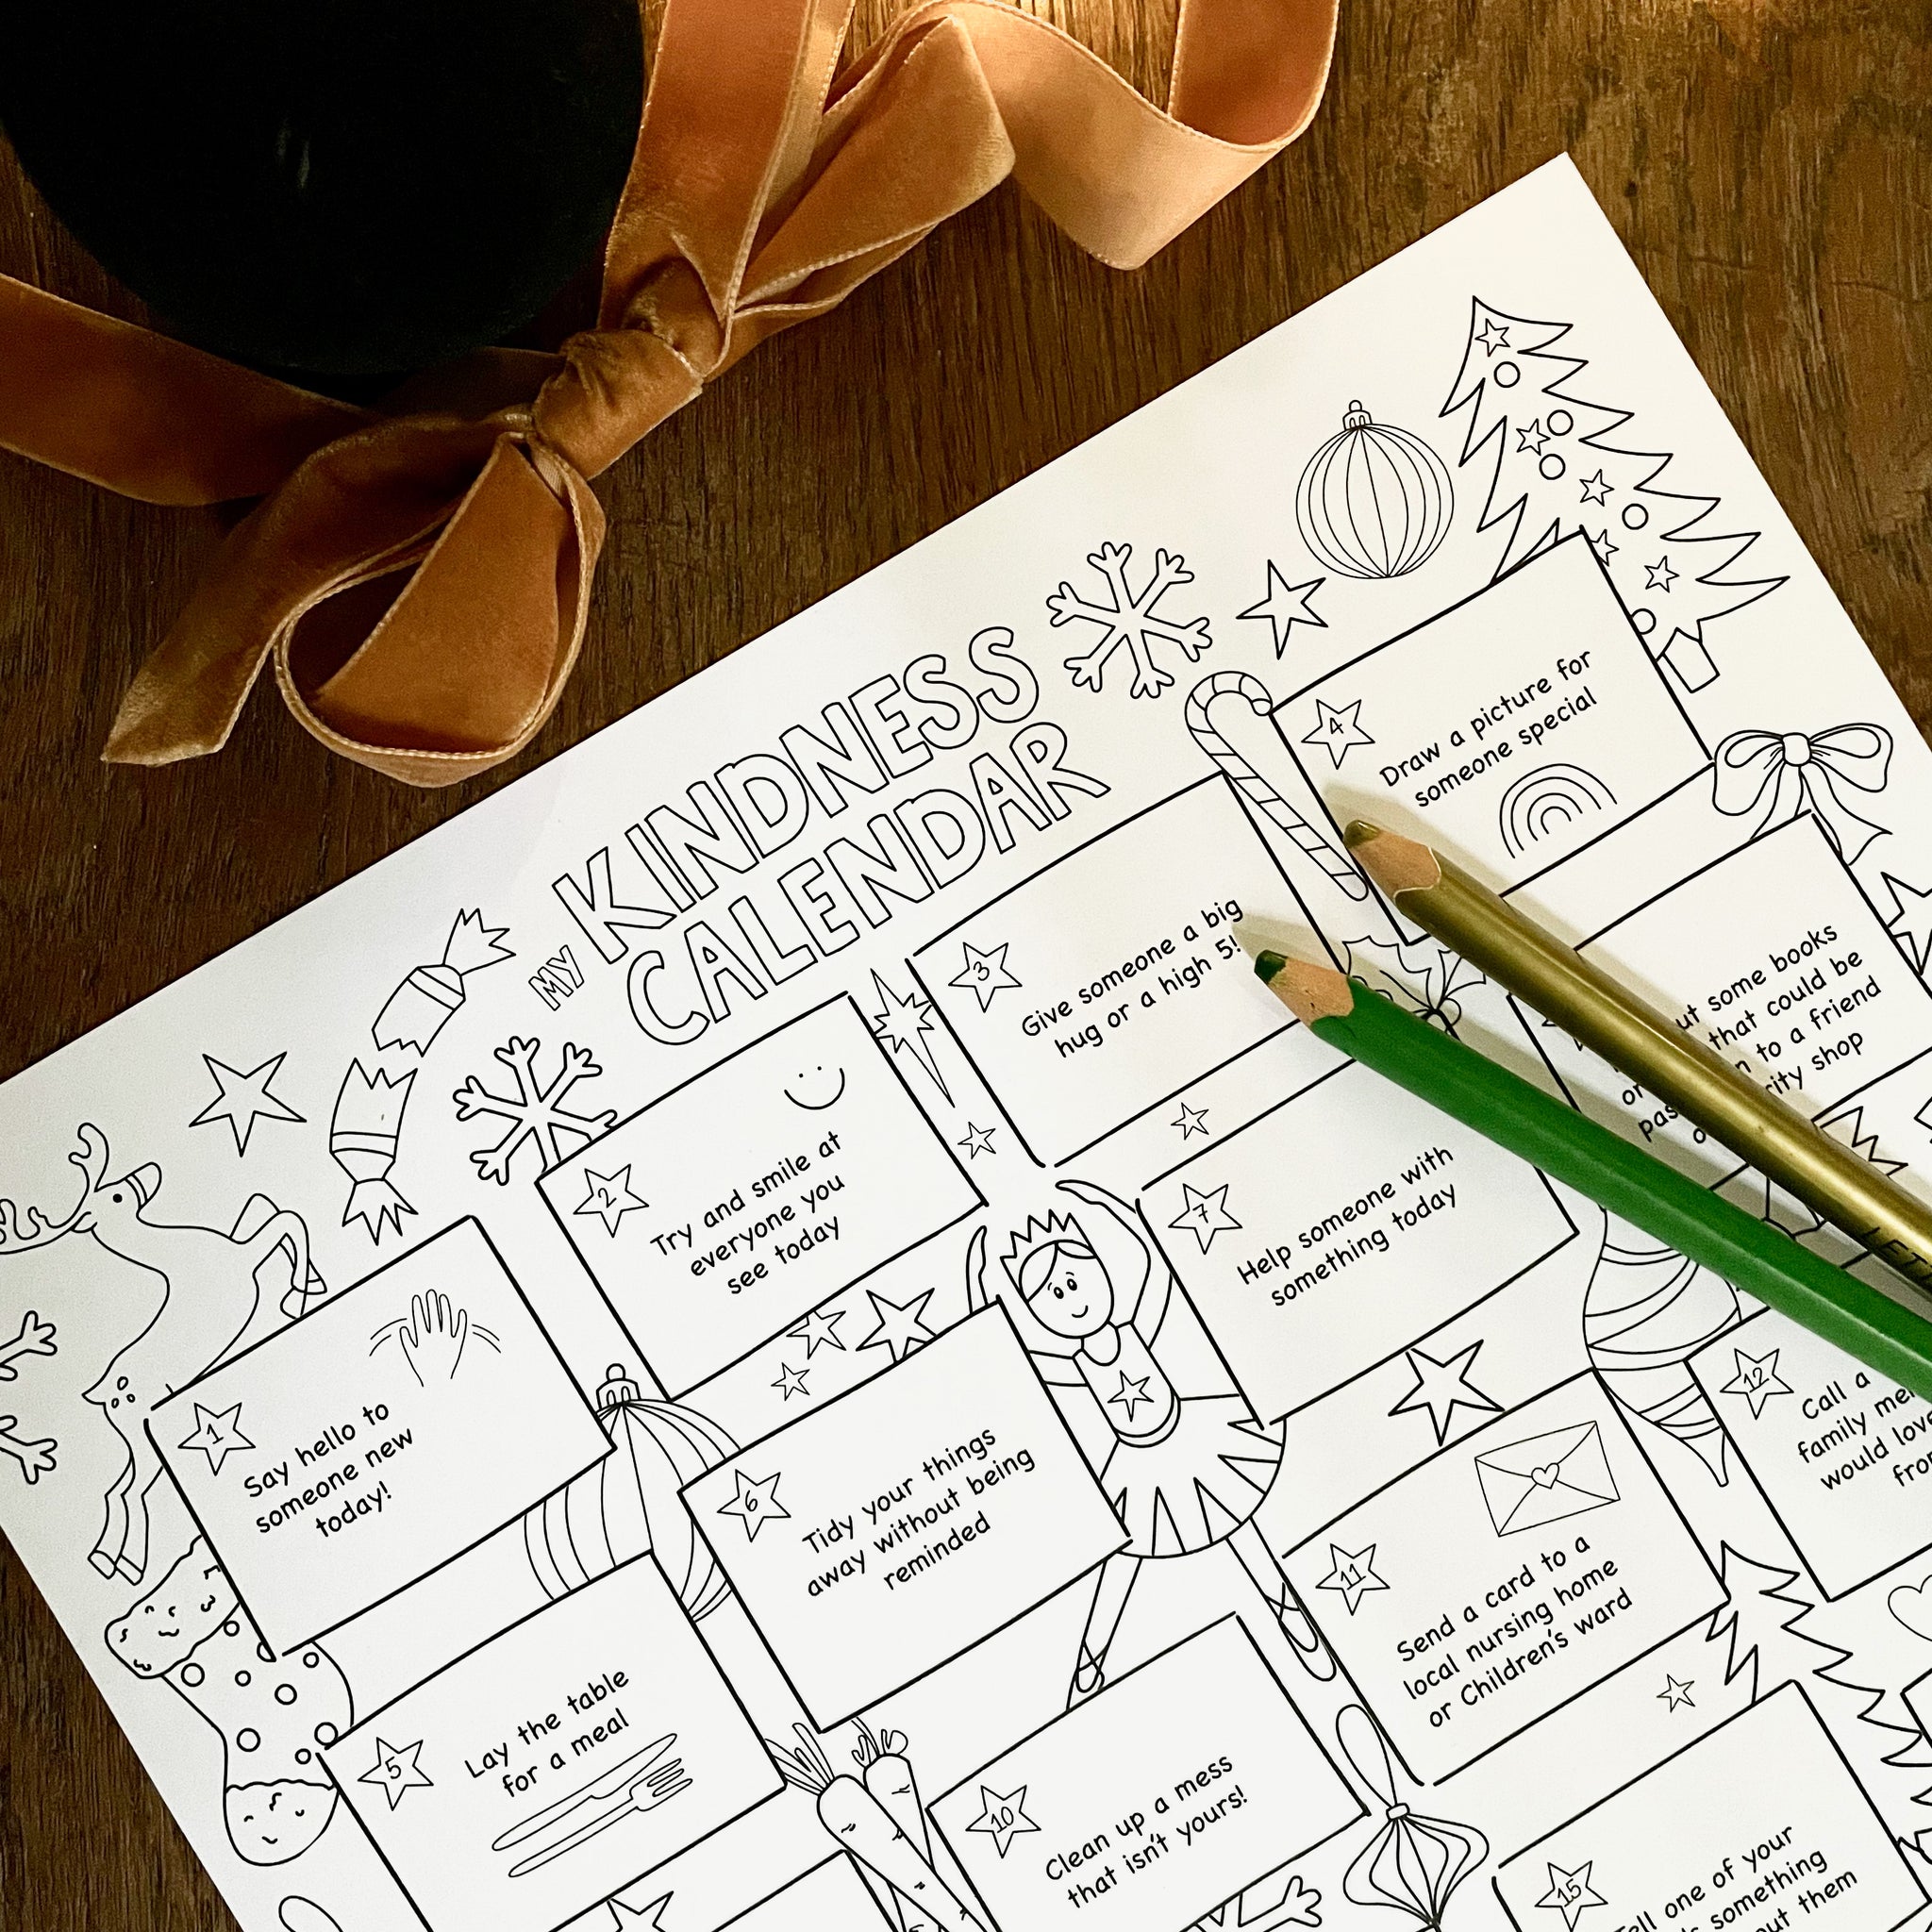 MY KINDNESS
CALENDAR
1
Say hello to
someone new
today!
2
Try and smile at
everyone you
see today
3
Give someone a big
hug or a high 5!
4
Draw a picture for
someone special
5
Lay the table
for a meal
6
Tidy your things
away without being
reminded
7
Help someone with
something today
some books
that could be
to a friend
shop
10
Clean up a mess
that isn't yours!
11
Send a card to a
local nursing home
or Children's ward
12
Call a
family
would
15
one of your
something
them